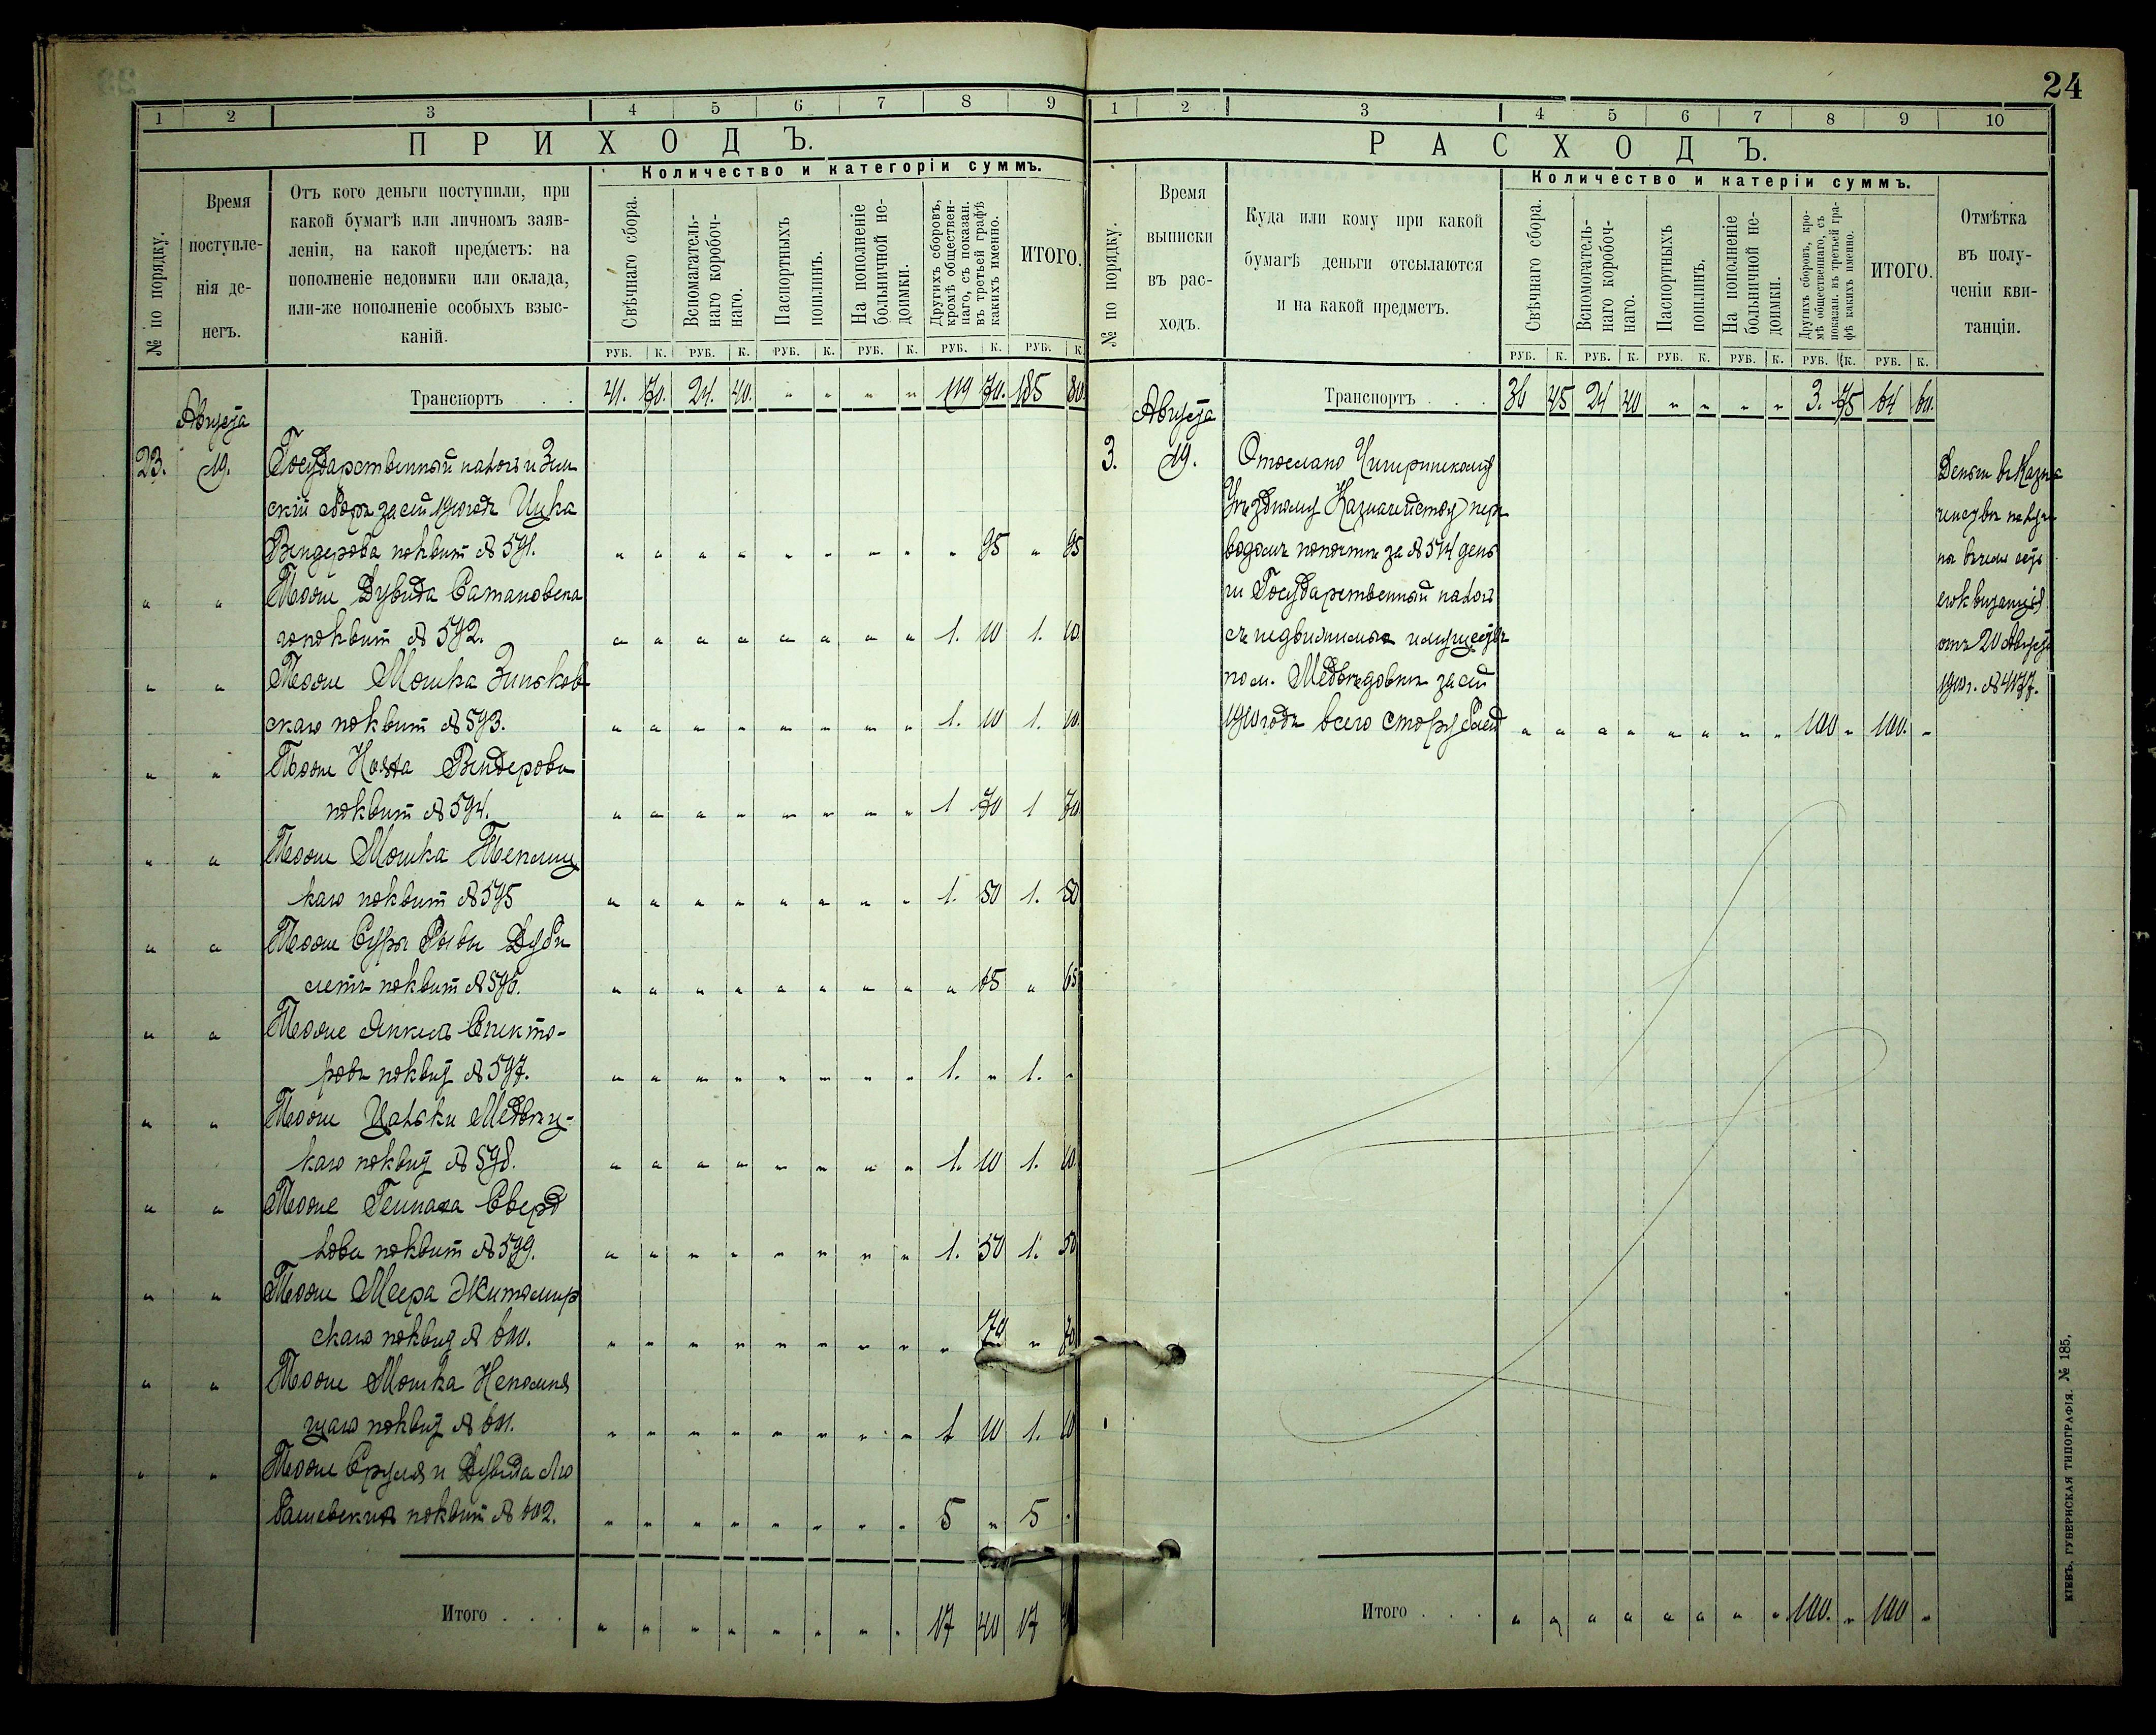 24
1 2 3 4 5 6 7 8 9
ПРИХОДЪ.
Количество и категоріи суммъ.
№ по порядку.
Время
поступле-
нія де-
негъ.
Отъ кого деньги поступили, при
какой бумагѣ или личномъ заяв-
леніи, на какой предметъ: на
пополненіе недоимки или оклада,
или-же пополненіе особыхъ взыс-
каній.
Свѣчнаго сбора.
Вспомагатель-
наго коробоч-
наго.
Паспортныхъ
пошлинъ.
На пополненіе
больничной не-
доимки.
Другихъ сборовъ,
кромѣ обществен-
наго, съ показан.
въ третьей графѣ
какихъ именно.
ИТОГО.
РУБ. К. РУБ. К. РУБ. К. РУБ. К. РУБ. К. РУБ. К.
Транспортъ . . 41. 70. 24. 40. " " " " 119 70. 185 80.
Августа
23. 19. Государственный налогъ и Зем
скій сборъ за сей 1910 годъ Ицка
Бендерова по квит № 591. " " " " " " " " " 95 " 95
" " Тоже Дувида Сатановска
го по квит № 592. " " " " " " " " 1. 10 1. 10
" " Тоже Мошка Зиньков
скаго по квит № 593. " " " " " " " " 1. 10 1. 10.
" " Тоже Бендерова
по квит № 594. " " " " " " " " 1 70 1 70.
" " Тоже Мошка Теплиц
каго по квит № 595 " " " " " " " " 1. 50 1. 50
" " Тоже Сура Ривы
по квит № 596. " " " " " " " " " 65 " 65
" " Тоже Янкель Спекто-
ровъ по квит № 597. " " " " " " " " 1. " 1. "
" " Тоже Цальки Медвец-
каго по квит № 598. " " " " " " " " 1. 10 1. 10.
" " Тоже Сверд
лова по квит № 599. " " " " " " " " 1. 50 1. 50
" " Тоже Меера Житомир
скаго по квит № 600. " " " " " " " " " 70 " 70
" " Тоже Мошка Непомня
щаго по квит № 601. " " " " " " " " 1 10 1. 10
" " Тоже Сруля и Дувида Лю
башевскихъ по квит № 602. " " " " " " " " 5 " 5 "
Итого . . . " " " " " " " " 17 40 17 40
1 2 3 4 5 6 7 8 9 10
РАСХОДЪ.
Количество и катеріи суммъ.
№ по порядку.
Время
выписки
въ рас-
ходъ.
Куда или кому при какой
бумагѣ деньги отсылаются
и на какой предметъ.
Свѣчнаго сбора.
Вспомогатель-
наго коробоч-
наго.
Паспортныхъ
пошлинъ.
На пополненіе
больничной не-
доимки.
Другихъ сборовъ, кро-
мѣ общественнаго, съ
показан. въ третьей гра-
фѣ какихъ именно.
ИТОГО.
Отмѣтка
въ полу-
ченіи кви-
танціи.
РУБ. К. РУБ. К. РУБ. К. РУБ. К. РУБ. К. РУБ. К.
Транспортъ . . . 36 45 24 40 " " " " 3. 75 64 60.
Августа
3. 19. Отослано Чигиринскому
Уѣздному Казначейству пере
водомъ по почтѣ за № 514 день
ги Государственный налогъ
съ недвижимыхъ имуществъ
по м. Медвѣдовкѣ за сей
1910 годъ всего сто рублей " " " " " " " " 100 " 100. "
Деньги въ Казна
чействѣ получе
ны въ чемъ есть
его квитанція
отъ 20 Августа
1910 г. № 4177.
Итого . . . " " " " " " " " 100. " 100 "
КІЕВЪ, ГУБЕРНСКАЯ ТИПОГРАФІЯ. № 185,